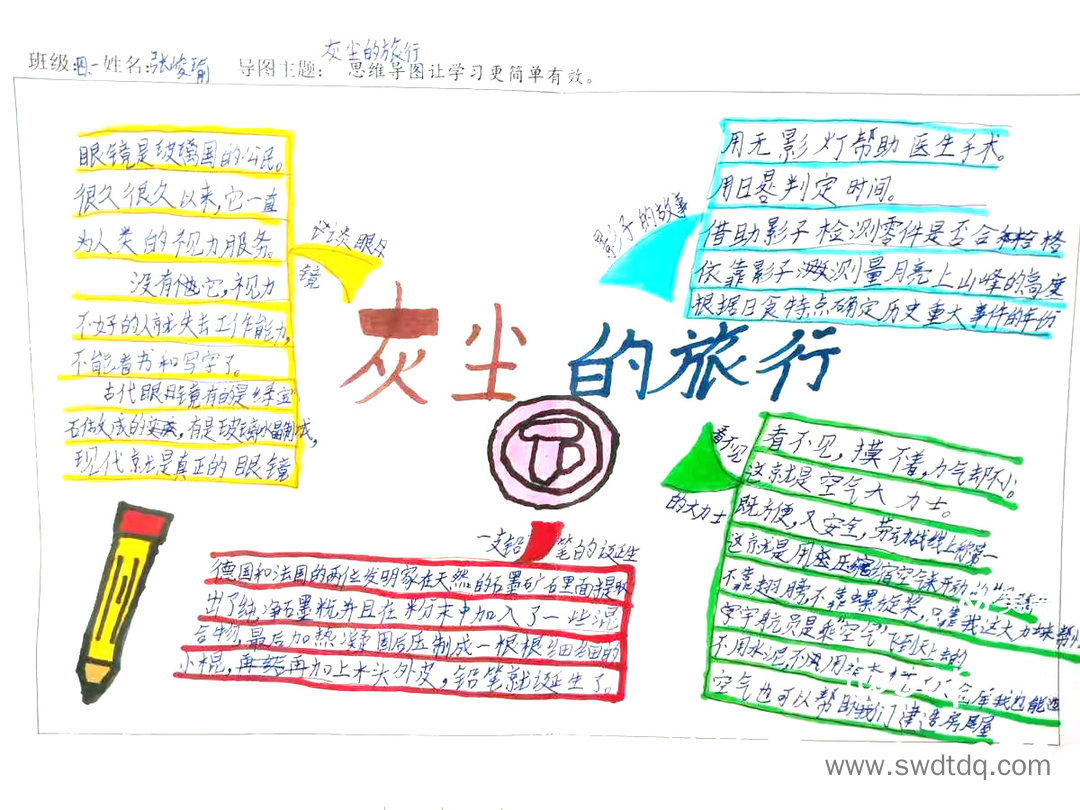 灰尘的旅行
班级:四一 姓名:张峻瑜 导图主题: 思维导图让学习更简单有效。
眼镜是玻璃国的公民。
很久很久以来,它一直
为人类的视力服务。
没有他它,视力
不好的人就失去工作能力,
不能看书和写字了。
古代眼镜有的是绿宝
石做成的,有是玻璃水晶制成,
现代就是真正的眼镜
谈谈眼
镜
灰尘的旅行
影子的故事
用无影灯帮助医生手术。
用日晷判定时间。
借助影子检测零件是否合格
依靠影子测量月亮上山峰的高度
根据日食特点确定历史重大事件的年份
看不见
的大力士
看不见,摸不着,力气却不小。
这就是空气大力士。
既方便,又安全,劳动战线上称第一
这就是用压缩空气开动的
不靠翅膀,不靠螺旋桨,只靠我这大力
宇宇航员是乘"空气"飞到上的
不用水泥,不用
空气也可以帮助我们建造房屋
一支铅笔的诞生
德国和法国的两位发明家在天然的石墨矿石里面提取
出了纯净石墨粉并且在粉末中加入了一些混
合物,最后加热凝固后压制成一根根细细的
小棍,再加上木头外皮,铅笔就诞生了。
www.swdtdq.com